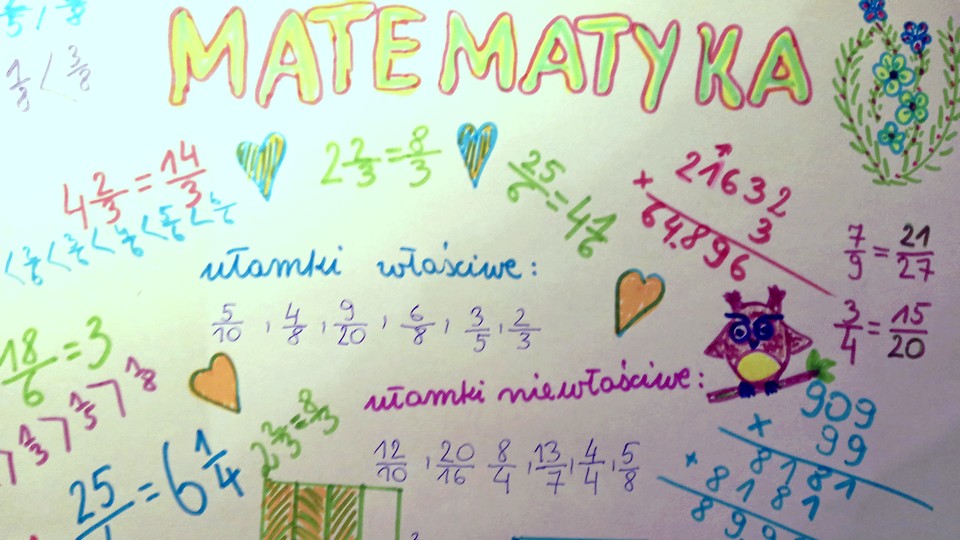 MATEMATYKA
1/8 < 3/8
4 2/3 = 14/3
2 2/3 = 8/3
25/6 = 4 1/6
21632
× 3
64.896
< 2/6 < 3/6 < 4/6 < 5/6 <
ułamki właściwe:
5/10 , 4/8 , 9/20 , 6/8 , 3/5 , 2/3
7/9 = 21/27
3/4 = 15/20
18/6 = 3
> 1/3 > 1/5 > 1/8
ułamki niewłaściwe:
12/10 , 20/16 8/4 , 13/7 , 4/4 , 5/8
2 2/3 = 8/3
25/ = 6 1/4
909
× 99
8181
+ 8181